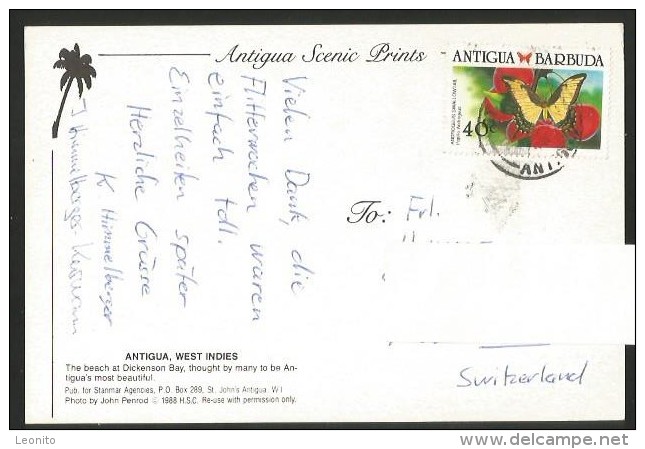 Antigua Scenic Prints
ANTIGUA BARBUDA
40c
ANTI
Vielen Dank, die
Flitterwochen waren
einfach toll.
Einzelheiten später
Herzliche Grüsse
K Himmelberger
J Himmelberger
To: Frl.
Switzerland
ANTIGUA, WEST INDIES
The beach at Dickenson Bay, thought by many to be An-
tigua's most beautiful.
Pub. for Stanmar Agencies, P.O. Box 289, St. John's Antigua, W I
Photo by John Penrod © 1988 H.S.C. Re-use with permission only.
Leonito
http://www.delcampe.net